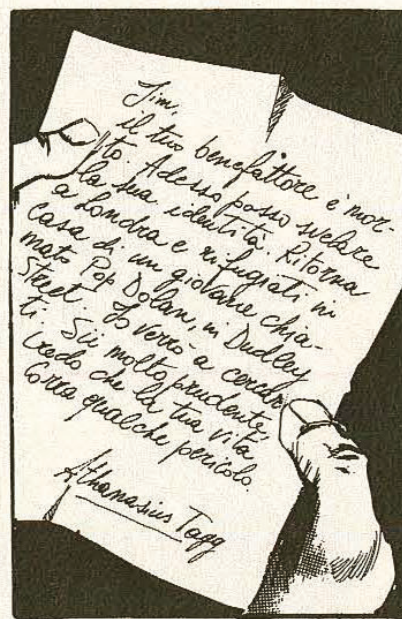 Jim,
il tuo benefattore è mor-
to. Adesso posso svelare
la sua identità. Ritorna
a Londra e rifugiati in
casa di un giovane chia-
mato Pop Dolan, in Dudley
Street. Io verrò a cercar-
ti. Sii molto prudente,
credo che la tua vita
corra qualche pericolo.
Athanasius Tagg